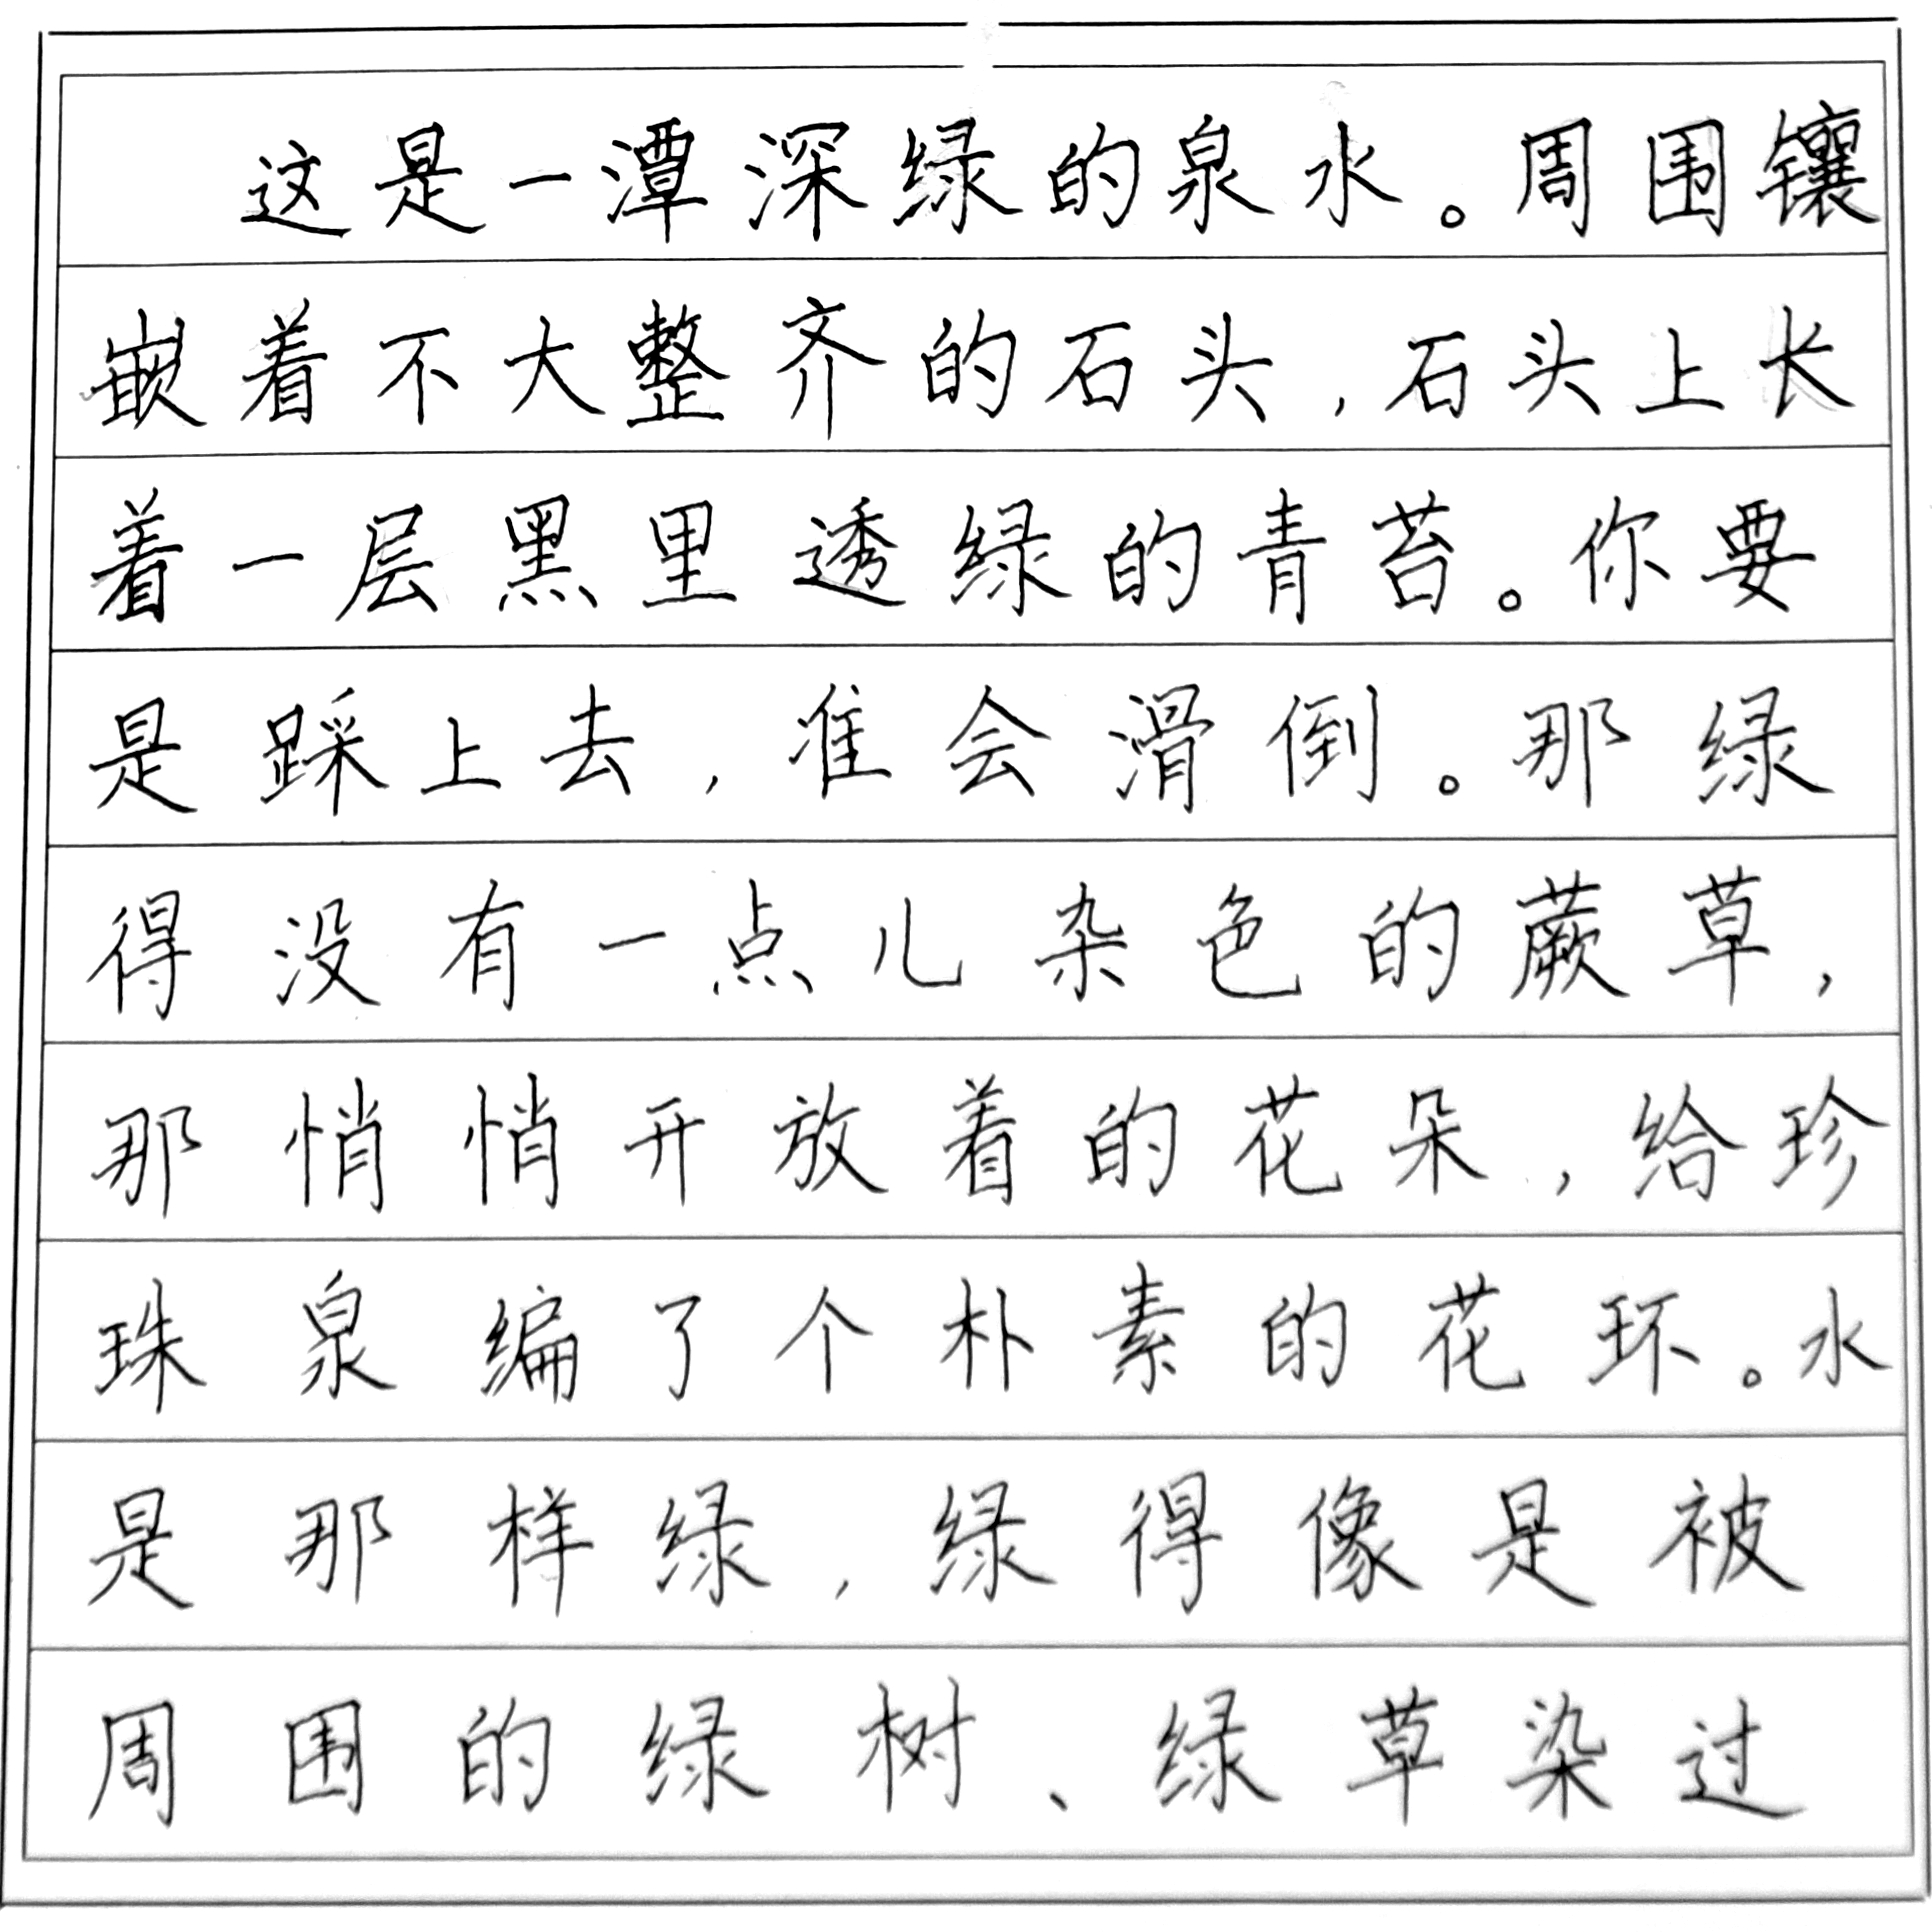 这是一潭深绿的泉水。周围镶
嵌着不大整齐的石头,石头上长
着一层黑里透绿的青苔。你要
是踩上去,准会滑倒。那绿
得没有一点儿杂色的蕨草,
那悄悄开放着的花朵,给珍
珠泉编了个朴素的花环。水
是那样绿,绿得像是被
周围的绿树、绿草染过